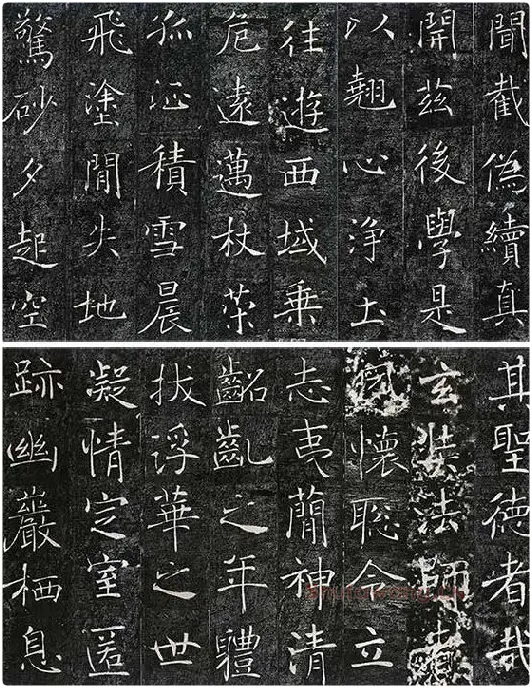 聞截偽續真
開茲後學是
以翹心浄土
往遊西域乗
危遠邁杖策
孤征積雪晨
飛塗閒失地
驚砂夕起空
其聖德者哉
玄奘法師者
夙懷聡令立
志夷簡神清
齠齔之年體
拔浮華之世
凝情定室匿
跡幽巖栖息